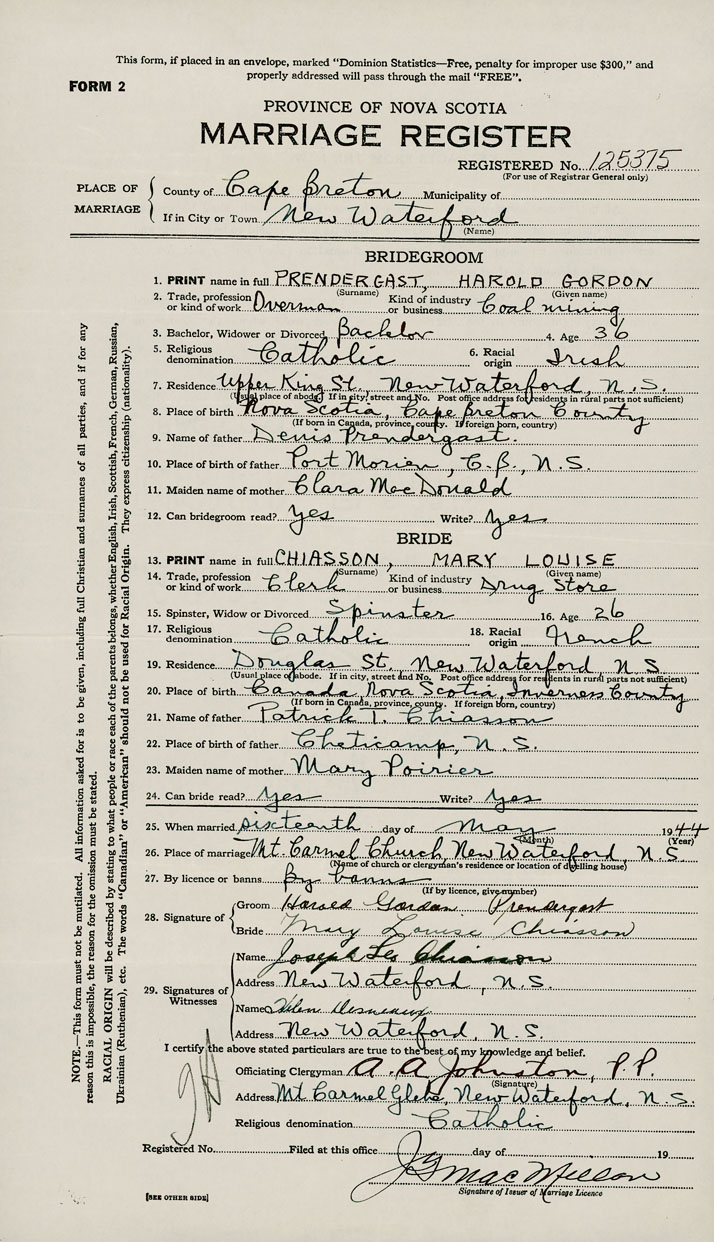 This form, if placed in an envelope, marked "Dominion Statistics—Free, penalty for improper use $300," and
properly addressed will pass through the mail "FREE".
FORM 2
PROVINCE OF NOVA SCOTIA
MARRIAGE REGISTER
REGISTERED No. 125375
(For use of Registrar General only)
PLACE OF MARRIAGE
County of Cape Breton Municipality of
If in City or Town New Waterford
(Name)
BRIDEGROOM
1. PRINT name in full PRENDERGAST, HAROLD GORDON
(Surname) (Given name)
2. Trade, profession or kind of work Overman Kind of industry or business Coal mining
3. Bachelor, Widower or Divorced Bachelor 4. Age 36
5. Religious denomination Catholic 6. Racial origin Irish
7. Residence Upper King St., New Waterford, N.S.
(Usual place of abode. If in city, street and No. Post office address for residents in rural parts not sufficient)
8. Place of birth Nova Scotia, Cape Breton County
(If born in Canada, province, county. If foreign born, country)
9. Name of father Denis Prendergast.
10. Place of birth of father Port Morien, C.B., N.S.
11. Maiden name of mother Clara MacDonald
12. Can bridegroom read? yes Write? yes
BRIDE
13. PRINT name in full CHIASSON, MARY LOUISE
(Surname) (Given name)
14. Trade, profession or kind of work Clerk Kind of industry or business Drug Store
15. Spinster, Widow or Divorced Spinster 16. Age 26
17. Religious denomination Catholic 18. Racial origin French
19. Residence Douglas St. New Waterford, N.S.
(Usual place of abode. If in city, street and No. Post office address for residents in rural parts not sufficient)
20. Place of birth Canada, Nova Scotia, Inverness County
(If born in Canada, province, county. If foreign born, country)
21. Name of father Patrick T. Chiasson
22. Place of birth of father Cheticamp, N.S.
23. Maiden name of mother Mary Poirier
24. Can bride read? yes Write? yes
25. When married sixteenth day of May 1944
(Month) (Year)
26. Place of marriage Mt. Carmel Church, New Waterford, N.S.
(Name of church or clergyman's residence or location of dwelling house)
27. By licence or banns By banns
(If by licence, give number)
28. Signature of
Groom Harold Gordon Prendergast
Bride Mary Louise Chiasson
29. Signatures of Witnesses
Name Joseph Leo Chiasson
Address New Waterford, N.S.
Name Helen
Address New Waterford, N.S.
I certify the above stated particulars are true to the best of my knowledge and belief.
Officiating Clergyman A. A. Johnston, P.P.
(Signature)
Address Mt Carmel Glebe, New Waterford, N.S.
Religious denomination Catholic
Registered No. Filed at this office day of 19
Signature of Issuer of Marriage Licence
[SEE OTHER SIDE]
NOTE.—This form must not be mutilated. All information asked for is to be given, including full Christian and surnames of all parties, and if for any
reason this is impossible, the reason for the omission must be stated.
RACIAL ORIGIN will be described by stating to what people or race each of the parents belongs, whether English, Irish, Scottish, French, German, Russian,
Ukrainian (Ruthenian), etc. The words "Canadian" or "American" should not be used for Racial Origin. They express citizenship (nationality).